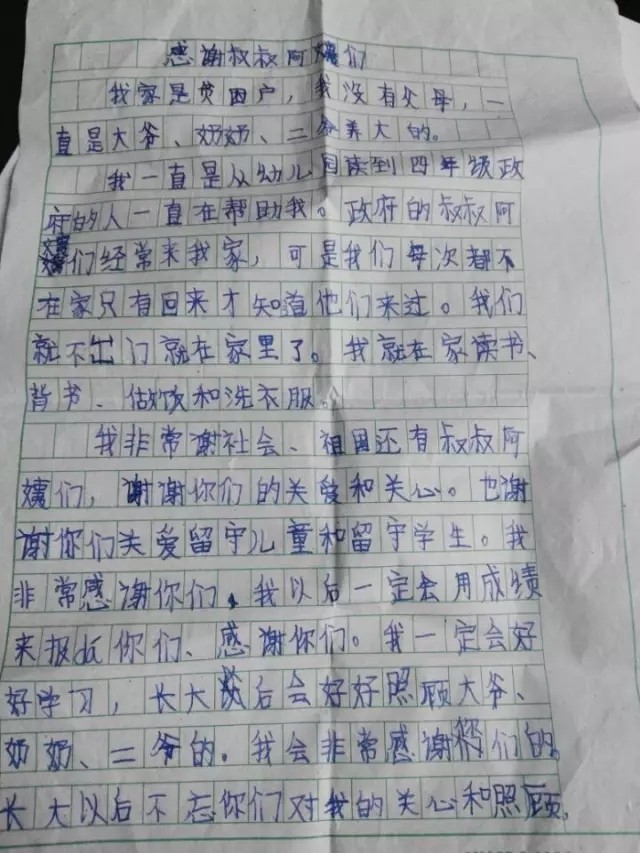 感谢叔叔阿姨们
我家是贫困户，我没有父母，一
直是大爷、奶奶、二爷养大的。
我一直是从幼儿园读到四年级政
府的人一直在帮助我。政府的叔叔阿
姨们经常来我家，可是我们每次都不
在家只有回来才知道他们来过。我们
就不出门就在家里了。我就在家读书、
背书、做饭和洗衣服。
我非常谢社会、祖国还有叔叔阿
姨们，谢谢你们的关爱和关心。也谢
谢你们关爱留守儿童和留守学生。我
非常感谢你们，我以后一定会用成绩
来报dá你们、感谢你们。我一定会好
好学习，长大以后会好好照顾大爷、
奶奶、二爷的。我会非常感谢你们的。
长大以后不忘你们对我的关心和照顾，